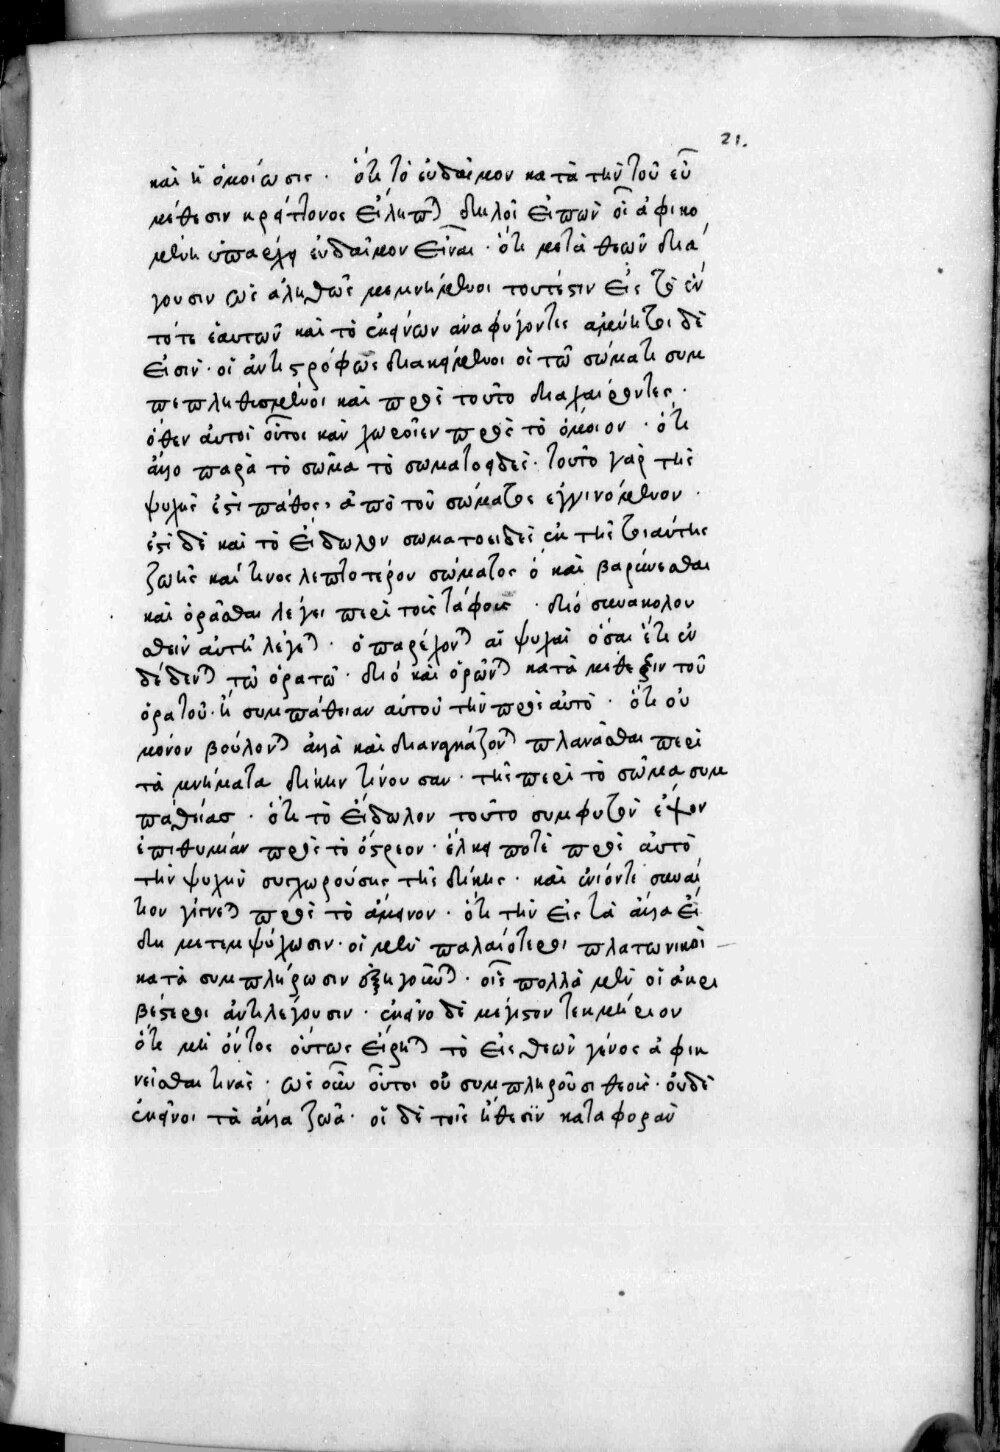 21.
καὶ ἡ ὁμοίωσις · ὅτι τὸ εὐδαῖμον κατὰ τὴν τοῦ εὖ
μέθεσιν κρείττονος εἴληπται δηλοῖ εἰπὼν οἷ ἀφικο
μένη ὑπάρχει εὐδαίμονι εἶναι · ὅτι μετὰ θεῶν διά
γουσιν ὡς ἀληθῶς μεμυημένοι τουτέστιν εἰς τὸ ἓν
τότε ἑαυτῶν καὶ τὸ ἐκείνων ἀναφυγόντες ἀμύητοι δέ
εἰσιν · οἱ ἀντιστρόφως διακείμενοι οἱ τῷ σώματι συμ
πεπληθυσμένοι καὶ πρὸς τοῦτο διαχαίροντες ·
ὅθεν αὐτοὶ οὗτοι κἂν χωροῖεν πρὸς τὸ ὅμοιον · ὅτι
ἄλλο παρὰ τὸ σῶμα τὸ σωματοειδές · τοῦτο γὰρ τῆς
ψυχῆς ἐστι πάθος, ἀπὸ τοῦ σώματος ἐγγινόμενον ·
ἐστὶ δὲ καὶ τὸ εἴδωλον σωματοειδὲς ἐκ τῆς τοιαύτης
ζωῆς καί τινος λεπτοτέρου σώματος ὃ καὶ βαρύνεσθαι
καὶ ὁρᾶσθαι λέγει περὶ τοῖς τάφοις · διὸ συνακολου
θεῖν αὐτῇ λέγεται · ὃ παρέχονται αἱ ψυχαὶ ὅσαι ἔτι ἐν
δέδενται τῷ ὁρατῷ · διὸ καὶ ὁρῶνται κατὰ μέθεξιν τοῦ
ὁρατοῦ · ἢ συμπάθειαν αὐτοῦ τὴν πρὸς αὐτό · ὅτι οὐ
μόνον βούλονται ἀλλὰ καὶ διαναγκάζονται πλανᾶσθαι περὶ
τὰ μνήματα δίκην τίνουσαι · τῆς περὶ τὸ σῶμα συμ
παθείας · ὅτι τὸ εἴδωλον τοῦτο σύμφυτον ἔχον
ἐπιθυμίαν πρὸς τὸ ὄστρεον · ἕλκει ποτὲ πρὸς αὐτὸ
τὴν ψυχὴν συγχωρούσης τῆς δίκης · καὶ ἐνιόντι συναί
τιον γίνεται πρὸς τὸ ἄμεινον · ὅτι τὴν εἰς τὰ ἄλλα εἴ
δη μετεμψύχωσιν · οἱ μὲν παλαιότεροι πλατωνικοὶ
κατὰ συμπλήρωσιν ἐξηγοῦνται · οἷς πολλὰ μὲν οἱ ἀκρι
βέστεροι ἀντιλέγουσιν · ἐκεῖνο δὲ μέγιστον τεκμήριον
ὅτι μὴ ὄντος οὕτως εἴρηται τὸ εἰς θεῶν γένος ἀφικ
νεῖσθαι τινάς · ὡς οὖν οὗτοι οὐ συμπληροῦσι θεοῖς · οὐδὲ
ἐκεῖνοι τὰ ἄλλα ζῷα · οἱ δὲ τοῖς ἤθεσιν καταφορὰν